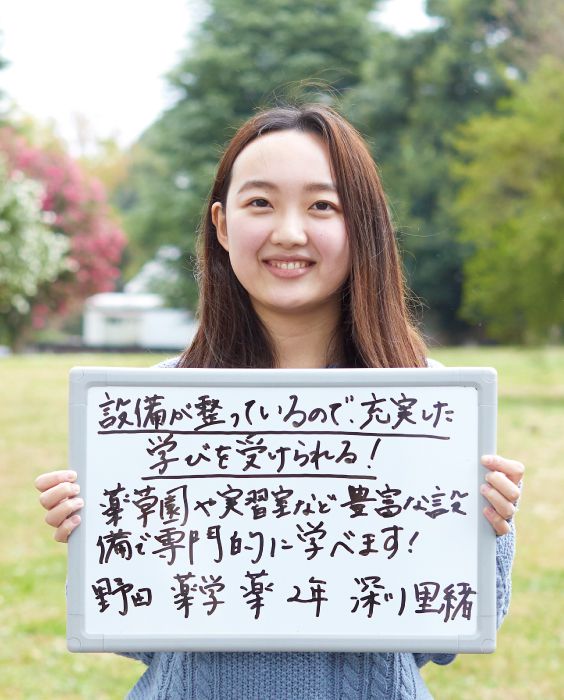 設備が整っているので、充実した
学びを受けられる！
薬草園や実習室など豊富な設
備で専門的に学べます！
野田 薬学 薬 2年 深川里緒